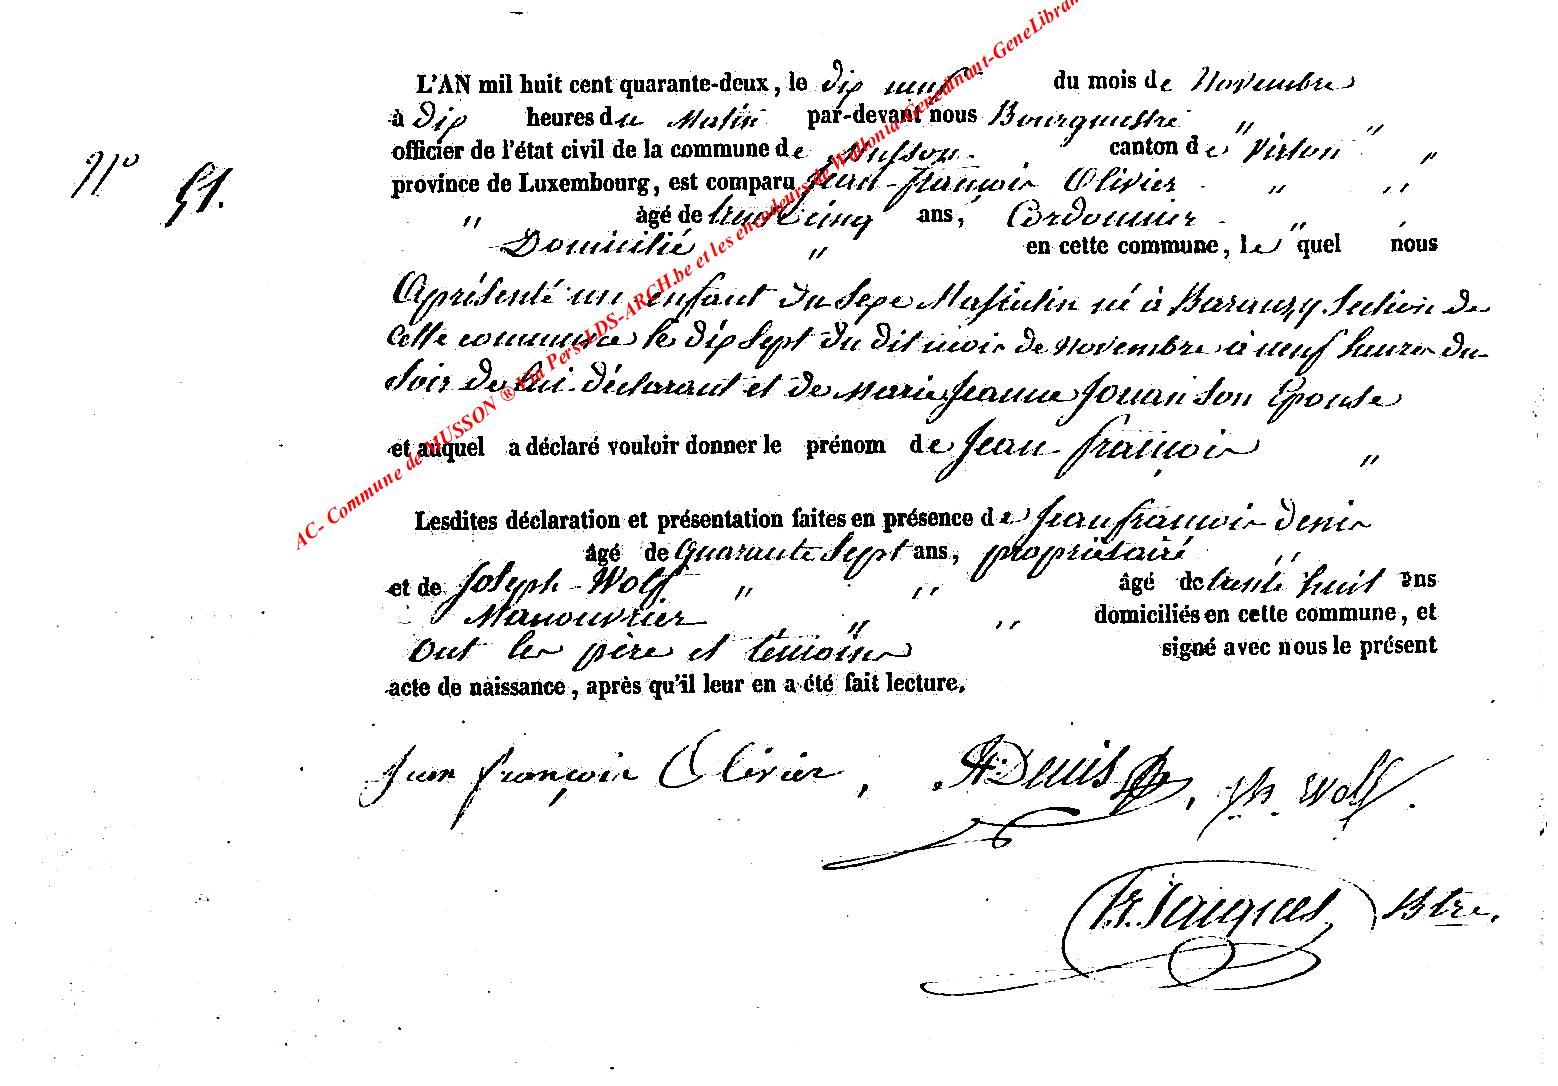 L'AN mil huit cent quarante-deux, le dix neuf du mois de Novembre
à Dix heures du Matin par-devant nous Bourguestre " "
Nº 51.
officier de l'état civil de la commune de Musson. canton de Virton " "
province de Luxembourg, est comparu Jean-françois Olivier " "
" âgé de trente cinq ans, Cordonnier "
Domicilié " en cette commune, le quel nous
Aprésenté un enfant du sexe Masculin né à Baranzy Section de
Cette commune le dix sept du dit mois de novembre à neuf heures du
Soir de lui déclarant et de Marie Jeanne Jouan son Epouse
et auquel a déclaré vouloir donner le prénom de Jean françois "
Lesdites déclaration et présentation faites en présence de Jean françois denis
âgé de Quarante Sept ans, propriétaire "
et de Joseph Wolf " " âgé de trente huit ans
Manouvrier " " domiciliés en cette commune, et
Ont les père et témoins signé avec nous le présent
acte de naissance, après qu'il leur en a été fait lecture.
Jean françois Olivier, Denis, Wolf.
Jacques Btre.
AC- Commune de MUSSON ® Via Pers-LDS-ARCH.be et les encodeurs de Wallonia-Genedinant-GeneLibran